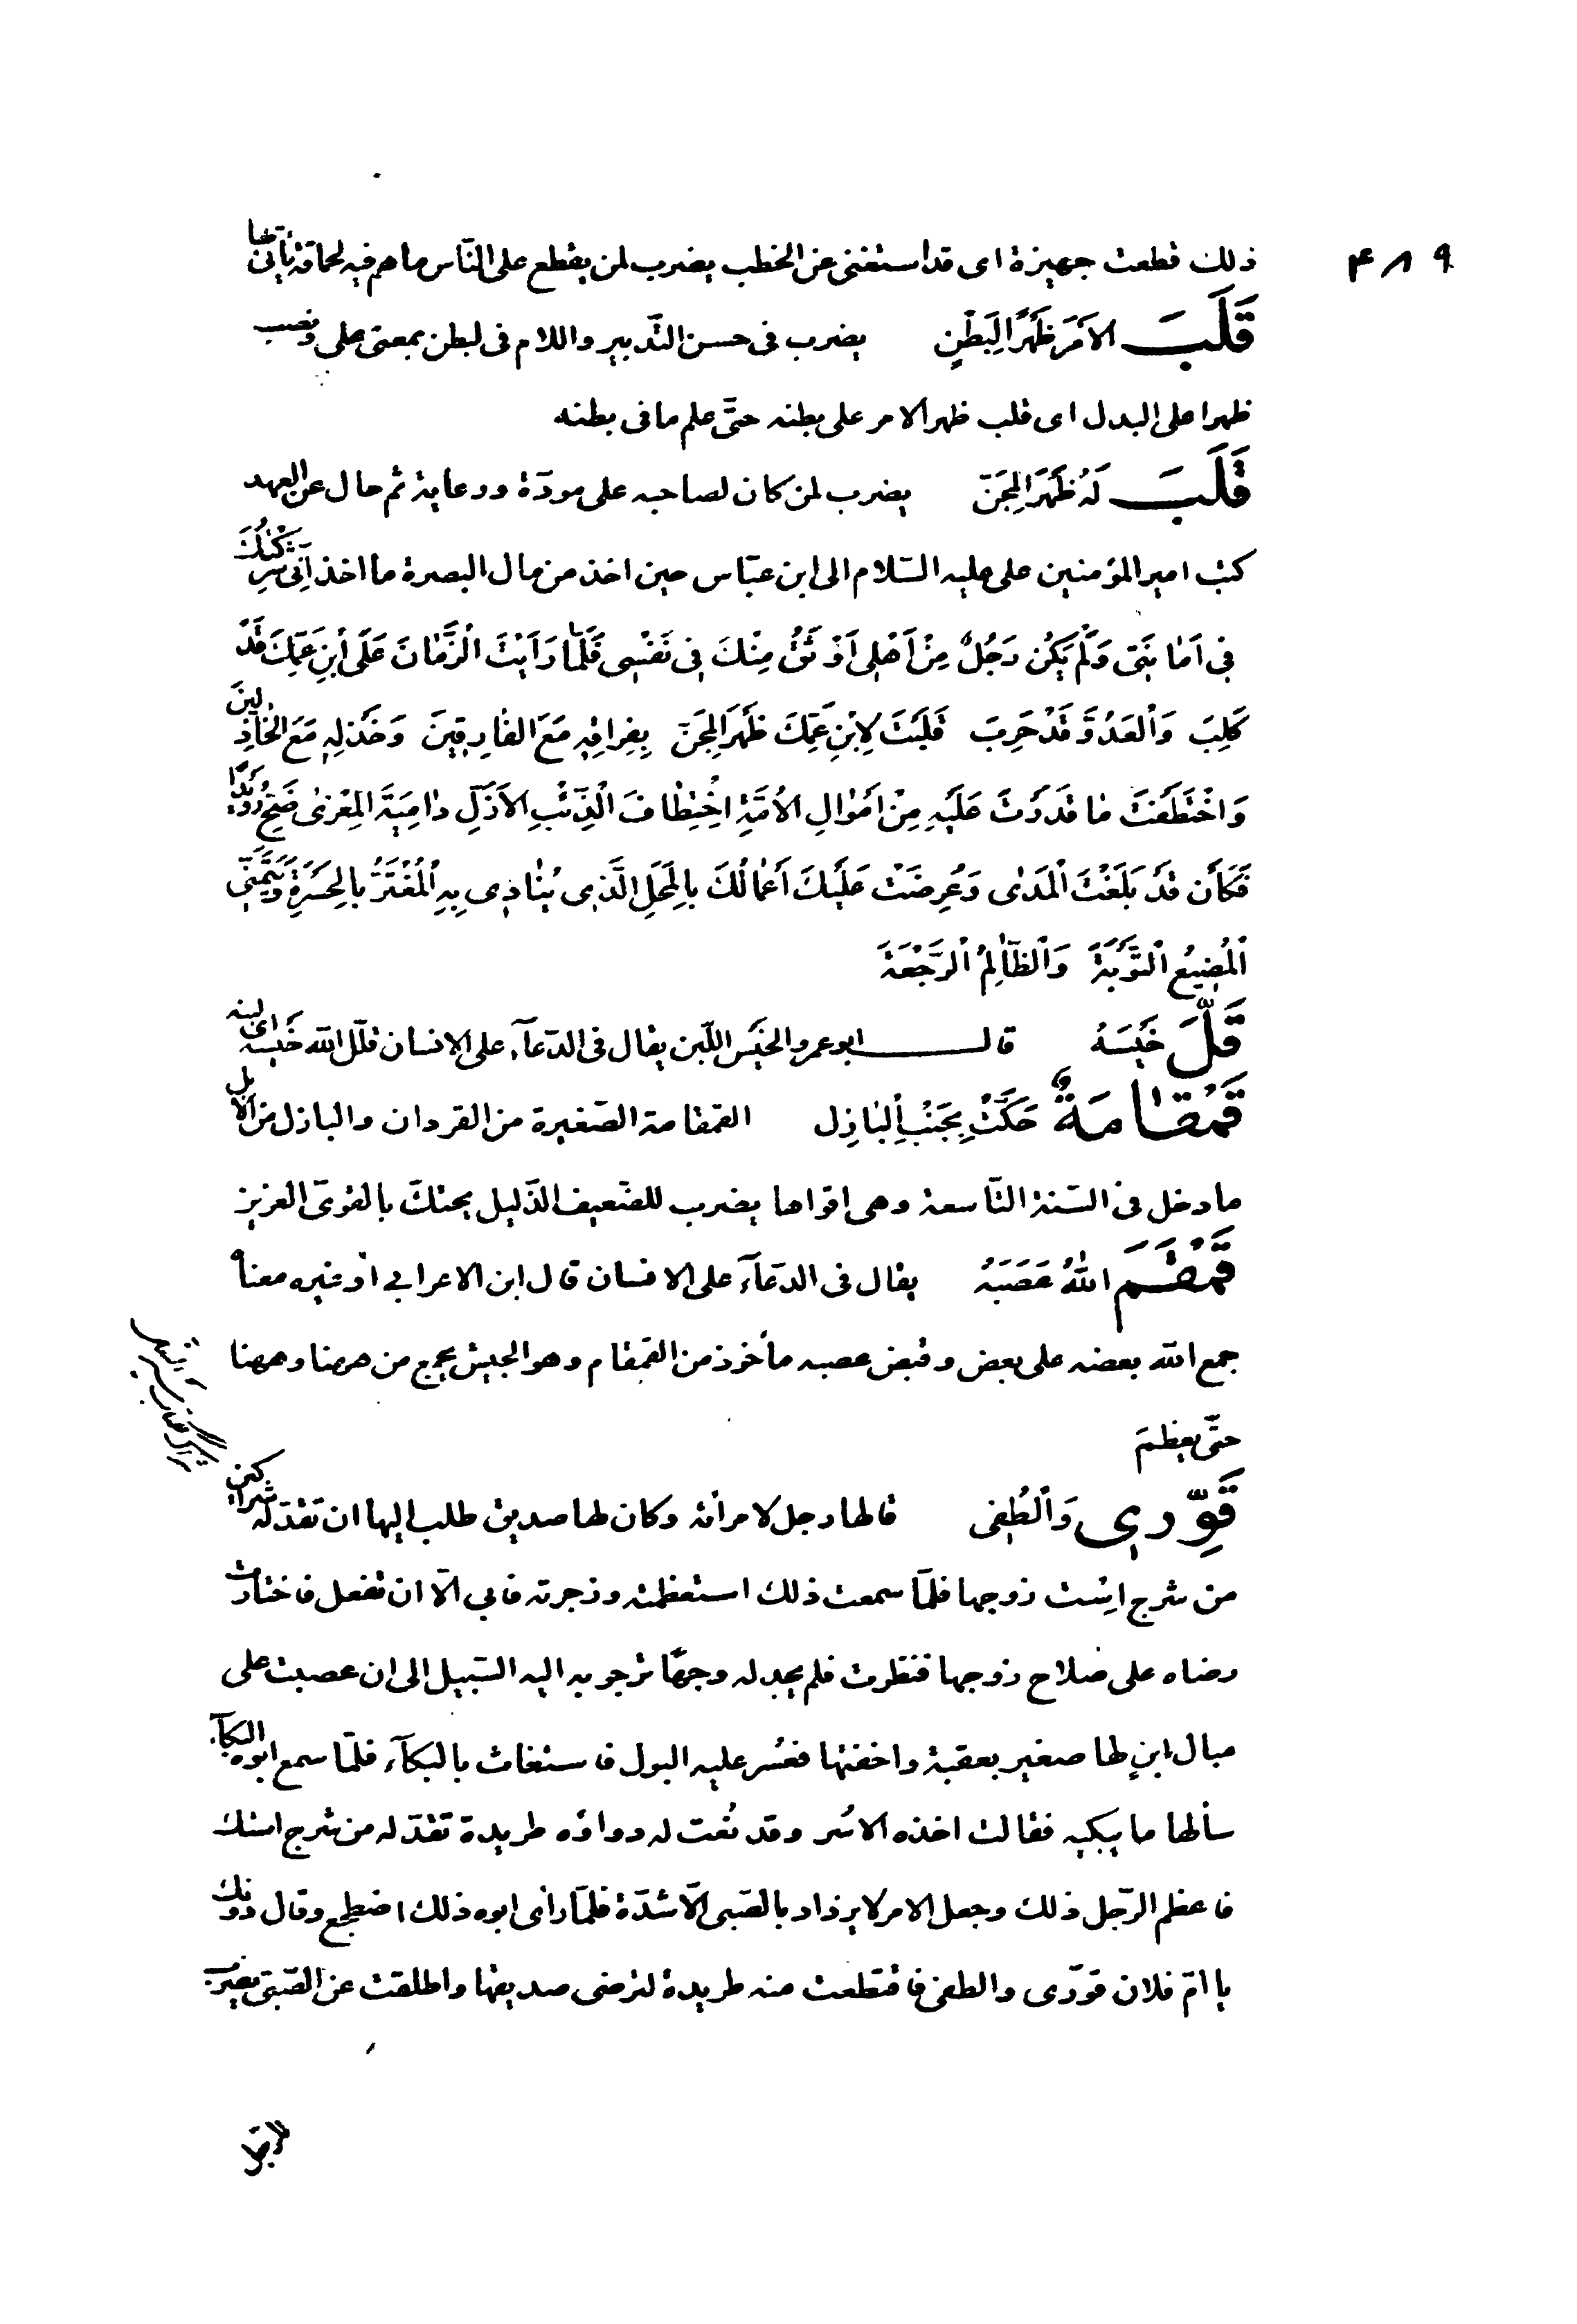 ۴۸۹
ذلك قطعت جهيزة اى قد استغنى عن الخطب يضرب لمن يقطع على النّاس ماهم فيه لحماقة يأتى بها
قَلَبَ الاَمْرَ ظَهْرًا لِبَطْنٍ يضرب فى حسن التّدبير واللام فى لبطن بمعنى على ونصب
ظهرا على البدل اى قلب ظهر الامر على بطنه حتّى علم ما فى بطنه
قَلَبَ لَهُ ظَهْرَ الْمِجَنّ يضرب لمن كان لصاحبه على مودّة ورعاية ثم حال عن العهد
كتب امير المؤمنين على عليه السّلام الى ابن عبّاس حين اخذ من مال البصرة ما اخذ اِنّى شَرِكْتُكَ
فى اَمٰانَتى وَلَمْ يَكُن رَجُلٌ مِنْ اَهْلى اَوْثَقُ مِنْكَ فى نَفْسى فَلَمّا رَاَيْتَ الْزَّمٰانَ عَلَى ابْنِ عَمِّكَ قَدْ
كَلِبَ وَالْعَدُوَّ قَدْ حَرِبَ قَلَبْتَ لِابْنِ عَمِّكَ ظَهْرَ الْمِجَنّ بِفِراقِهِ مَعَ الفٰارِقينَ وَخَذْلِهِ مَعَ الْخٰاذِلينَ
وَاخْتَطَفْتَ مٰا قَدَرْتَ عَلَيْهِ مِنْ اَمْوٰالِ الاُمَّةِ اخْتِطٰافَ الْذِّئْبِ الاَزَلِّ دٰامِيَةَ الْمِعْزىٰ ضَحِّ رُوَيْدًا
فَكَاَن قَدْ بَلَغْتَ الْمَدىٰ وَعُرِضَتْ عَلَيْكَ اَعْمٰالُكَ بالْمَحَلِّ الَّذى يُنٰادى بِهِ الْمُغْتَرُّ بالْحَسْرَةِ وَيَتَمَنّى
الْمُضيعُ الْتَّوْبَةَ وَالْظّٰالِمُ الْرَّجْعَةَ
قَلَّ خَيْسُهُ قال ابو عمرو الخَيْس اللّبن يقال فى الدّعآء على الانسان قلّل الله خَيْسه اى لبنه
قَمْقٰامَةٌ حَكَّتْ بِجَنْبِ الْبٰازِل القمقامة الصّغيرة من القردان والبازل من الابل
مادخل فى السّنة التّاسعة وهى اقواها يضرب للضّعيف الذّليل يحتكّ بالقوىّ العزيز
قَمْقَمَ اللهُ عَصَبَهُ يقال فى الدّعآء على الانسان قال ابن الاعرابى او غيره معناه
جمع الله بعضه على بعض وقبض عصبه مأخوذ من القمقام وهو الجيش يجمع من ههنا وههنا
حتّى يعظمَ
قَوِّرى وَالْطُفى قالها رجل لامرأته وكان لها صديق طلب اليها ان تقدّ له شراكين
من شرج اسْت زوجها فلمّا سمعت ذلك استعظمته وزجرته فابى الّا ان تفعل فاختارت
رضاه على صلاح زوجها فنظرت فلم يجد له وجهًا ترجو به اليه السّبيل الى ان عصبت على
مبال ابنٍ لها صغير بعقبة واخفتها فعُسر عليه البول فاستغاث بالبكآء فلمّا سمع ابوه البكآء
سألها ما يبكيه فقالت اخذه الاُسر وقد نُعت له دواؤه طريدة تقدّ له من شرج استك
فاعظم الرّجل ذلك وجعل الامر لا يزداد بالصّبى الّا شدّة فلمّا رأى ابوه ذلك اضطجع وقال دونك
يا امّ فلان قوّرى والطفى فاقتطعت منه طريدة لترضى صديقها واطلقت عن الصّبىّ يضرب